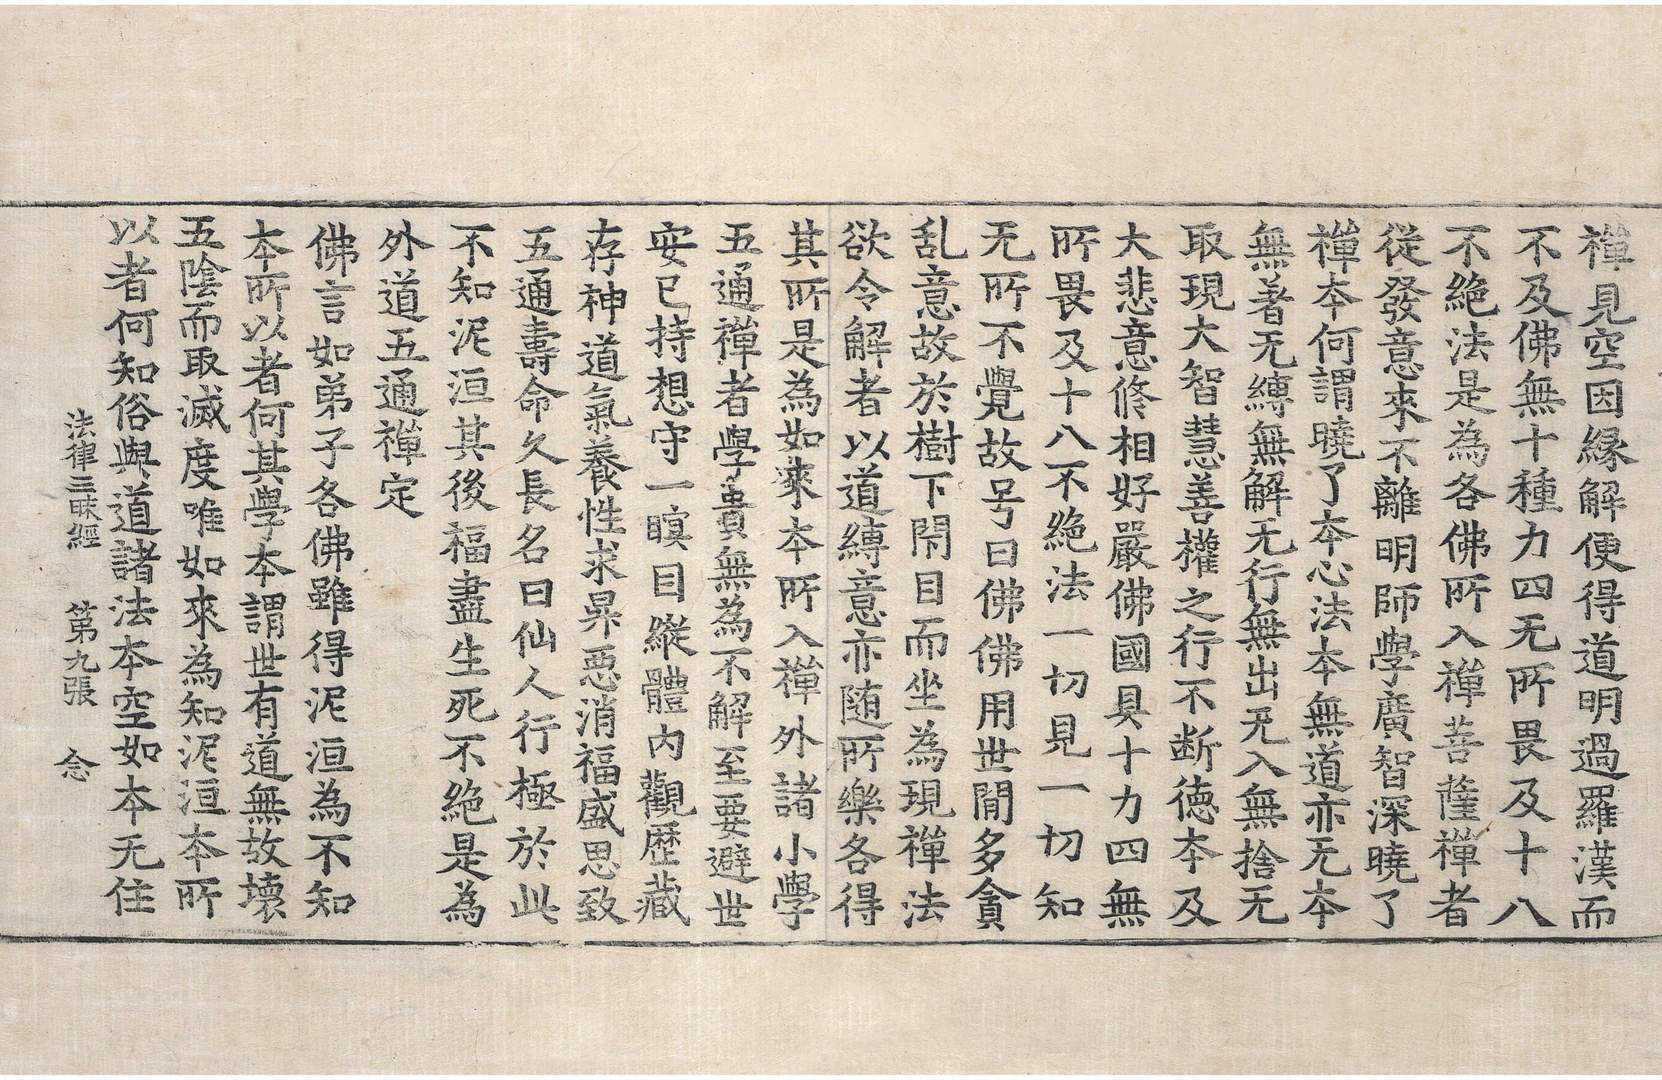 禪見空因緣解便得道明過羅漢而
不及佛無十種力四无所畏及十八
不絶法是為各佛所入禪菩薩禪者
從發意來不離明師學廣智深曉了
禪本何謂曉了本心法本無道亦无本
無著无縛無解无行無出无入無捨无
取現大智慧善權之行不断德本及
大悲意修相好嚴佛國具十力四無
所畏及十八不絶法一切見一切知
无所不覺故号曰佛佛用世間多貪
乱意故於樹下閇目而坐為現禪法
欲令解者以道縛意亦随所樂各得
其所是為如來本所入禪外諸小學
五通禪者學貴無為不解至要避世
安已持想守一瞑目縱體內觀歴藏
存神道氣養性求昇惡消福盛思致
五通壽命久長名曰仙人行極於此
不知泥洹其後福盡生死不絶是為
外道五通禪定
佛言如弟子各佛雖得泥洹為不知
本所以者何其學本謂世有道無故壊
五陰而取滅度唯如來為知泥洹本所
以者何知俗與道諸法本空如本无住
法律三昧經 第九張 念